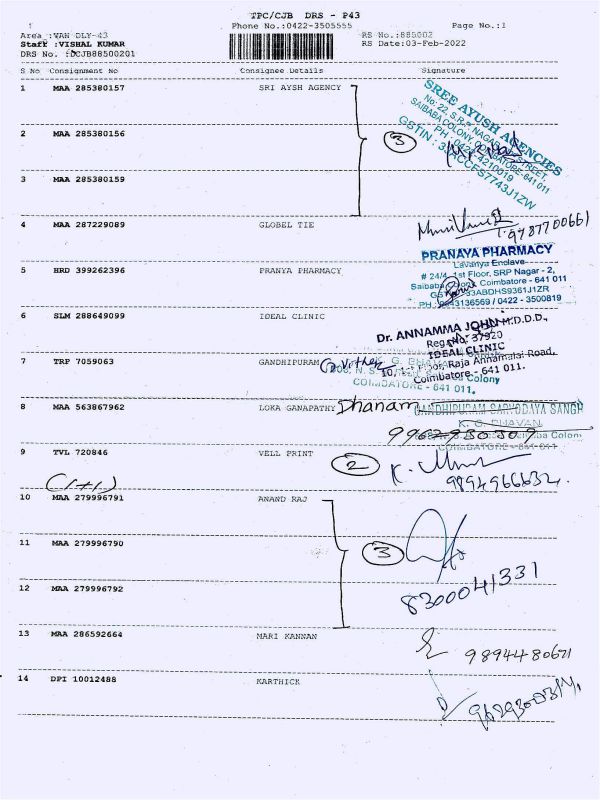 TPC/CJB DRS - P43
Phone No.:0422-3505555
Page No.:1
Area :VAN DLY-43
RS No.:885002
Staff :VISHAL KUMAR
RS Date:03-Feb-2022
DRS No. :DCJB88500201
S No Consignment No Consignee Details Signature
1 MAA 285380157 SRI AYSH AGENCY
SREE AYUSH AGENCIES
No: 22, S.R.P. NAGAR, STREET
SAIBABA COLONY, COIMBATORE-641 011
PH : 0422-4210019
GSTIN : 33ACCFS7743J1ZW
2 MAA 285380156
3
3 MAA 285380159
4 MAA 287229089 GLOBEL TIE
9787700661
PRANAYA PHARMACY
Lavanya Enclave
5 HRD 399262396 PRANYA PHARMACY
# 24/4, 1st Floor, SRP Nagar - 2,
Saibaba Colony, Coimbatore - 641 011
GSTIN : 33ABDHS9361J1ZR
PH : 9843136569 / 0422 - 3500819
6 SLM 288649099 IDEAL CLINIC
Dr. ANNAMMA JOHN M.D.D.D.,
Reg.No: 37920
IDEAL CLINIC
7 TRP 7059063 GANDHIPURAM
10, 1st Floor, Raja Annamalai Road,
Coimbatore - 641 011.
COIMBATORE - 641 011.
8 MAA 563867962 LOKA GANAPATHY Dhanam
GANDHIPURAM SARVODAYA SANGH
K. G. BHAVAN
9962930309
COIMBATORE - 641 011
9 TVL 720846 VELL PRINT
2
9894966632.
(1+1)
10 MAA 279996791 ANAND RAJ
11 MAA 279996790
3
12 MAA 279996792
8300041331
13 MAA 286592664 MARI KANNAN
9894480671
14 DPI 10012488 KARTHICK